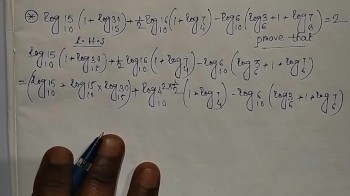 ⊛ log₁₀¹⁵(1+log₁₅³⁰)+½log₁₀¹⁶(1+log₄⁷)-log₁₀⁶(log₆³+1+log₆⁷)=2
L.H.S prove that
log₁₀¹⁵(1+log₁₅³⁰)+½log₁₀¹⁶(1+log₄⁷)-log₁₀⁶(log₆³+1+log₆⁷)
=(log₁₀¹⁵+log₁₀¹⁵×log₁₅³⁰)+log₁₀4^(2×½)(1+log₄⁷)-log₁₀⁶(log₆³+1+log₆⁷)